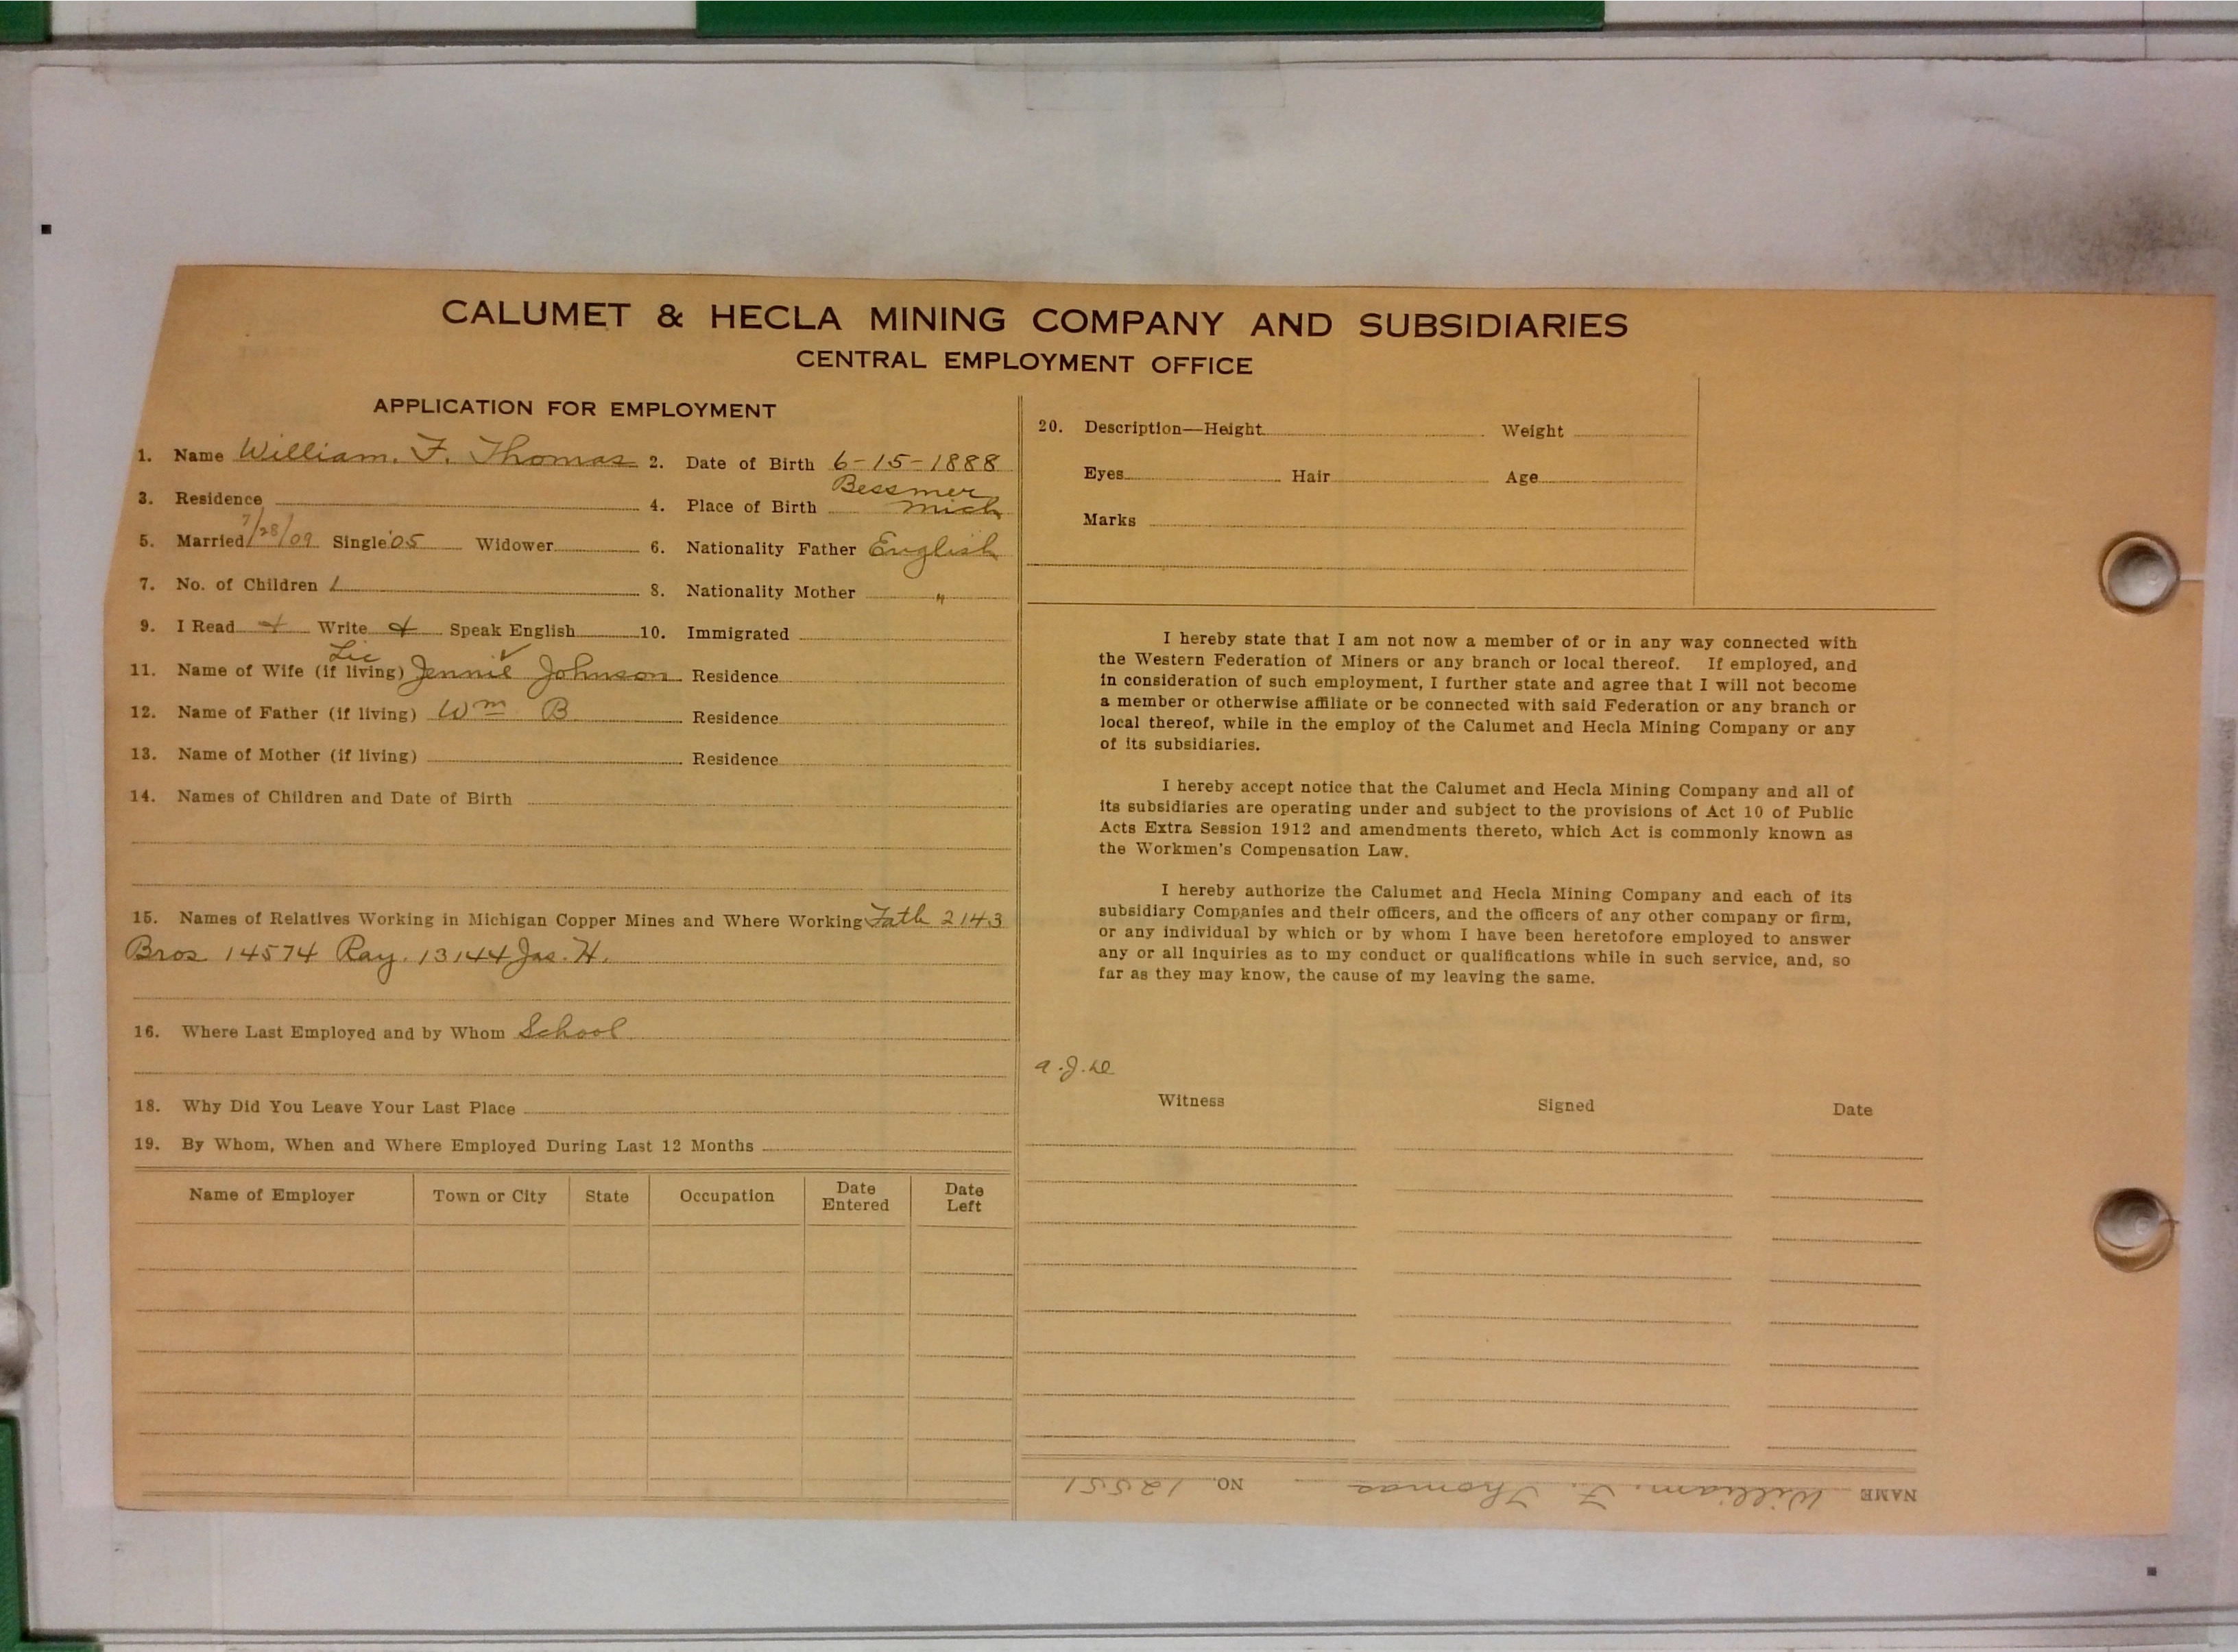 CALUMET & HECLA MINING COMPANY AND SUBSIDIARIES
CENTRAL EMPLOYMENT OFFICE
APPLICATION FOR EMPLOYMENT
1. Name William. F. Thomas 2. Date of Birth 6-15-1888
3. Residence 4. Place of Birth Bessmer Mich
5. Married 7/28/09 Single '05 Widower 6. Nationality Father English
7. No. of Children 1 8. Nationality Mother "
9. I Read Write Speak English 10. Immigrated
Lic
11. Name of Wife (if living) Jennie Johnson Residence
12. Name of Father (if living) Wm B Residence
13. Name of Mother (if living) Residence
14. Names of Children and Date of Birth
15. Names of Relatives Working in Michigan Copper Mines and Where Working Fath 2143
Bros. 14574 Ray. 13144 Jas. H.
16. Where Last Employed and by Whom School
18. Why Did You Leave Your Last Place
19. By Whom, When and Where Employed During Last 12 Months
Name of Employer Town or City State Occupation Date Entered Date Left
20. Description—Height Weight
Eyes Hair Age
Marks
I hereby state that I am not now a member of or in any way connected with
the Western Federation of Miners or any branch or local thereof. If employed, and
in consideration of such employment, I further state and agree that I will not become
a member or otherwise affiliate or be connected with said Federation or any branch or
local thereof, while in the employ of the Calumet and Hecla Mining Company or any
of its subsidiaries.
I hereby accept notice that the Calumet and Hecla Mining Company and all of
its subsidiaries are operating under and subject to the provisions of Act 10 of Public
Acts Extra Session 1912 and amendments thereto, which Act is commonly known as
the Workmen's Compensation Law.
I hereby authorize the Calumet and Hecla Mining Company and each of its
subsidiary Companies and their officers, and the officers of any other company or firm,
or any individual by which or by whom I have been heretofore employed to answer
any or all inquiries as to my conduct or qualifications while in such service, and, so
far as they may know, the cause of my leaving the same.
Witness Signed Date
NAME William. F. Thomas NO. 12551